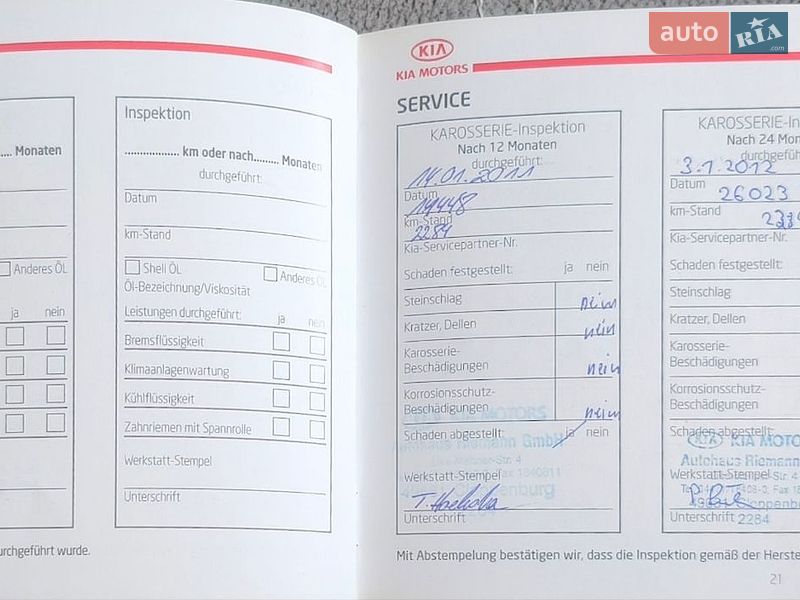 auto RIA .com
... Monaten
Anderes ÖL
ja nein
urchgeführt wurde.
Inspektion
................... km oder nach......... Monaten
durchgeführt:
Datum
km-Stand
Shell ÖL
Anderes ÖL
Öl-Bezeichnung/Viskosität
Leistungen durchgeführt: ja nein
Bremsflüssigkeit
Klimaanlagenwartung
Kühlflüssigkeit
Zahnriemen mit Spannrolle
Werkstatt-Stempel
Unterschrift
KIA
KIA MOTORS
SERVICE
KAROSSERIE-Inspektion
Nach 12 Monaten
durchgeführt:
14.01.2011
Datum
19448
km-Stand
2284
Kia-Servicepartner-Nr.
Schaden festgestellt: ja nein
Steinschlag nein
Kratzer, Dellen nein
Karosserie-
Beschädigungen nein
Korrosionsschutz-
Beschädigungen nein
KIA MOTORS
Schaden abgestellt: ja nein
Autohaus Riemann GmbH
Werkstatt-Stempel
Unterschrift
KAROSSERIE-In
Nach 24 Mon
durchgefüh
3.1.2012
Datum
26023
km-Stand
Kia-Servicepartner-Nr.
Schaden festgestellt:
Steinschlag
Kratzer, Dellen
Karosserie-
Beschädigungen
Korrosionsschutz-
Beschädigungen
Schaden abgestellt:
KIA KIA MOTO
Autohaus Riemann
Werkstatt-Stempel
Unterschrift 2284
Mit Abstempelung bestätigen wir, dass die Inspektion gemäß der Herste
21